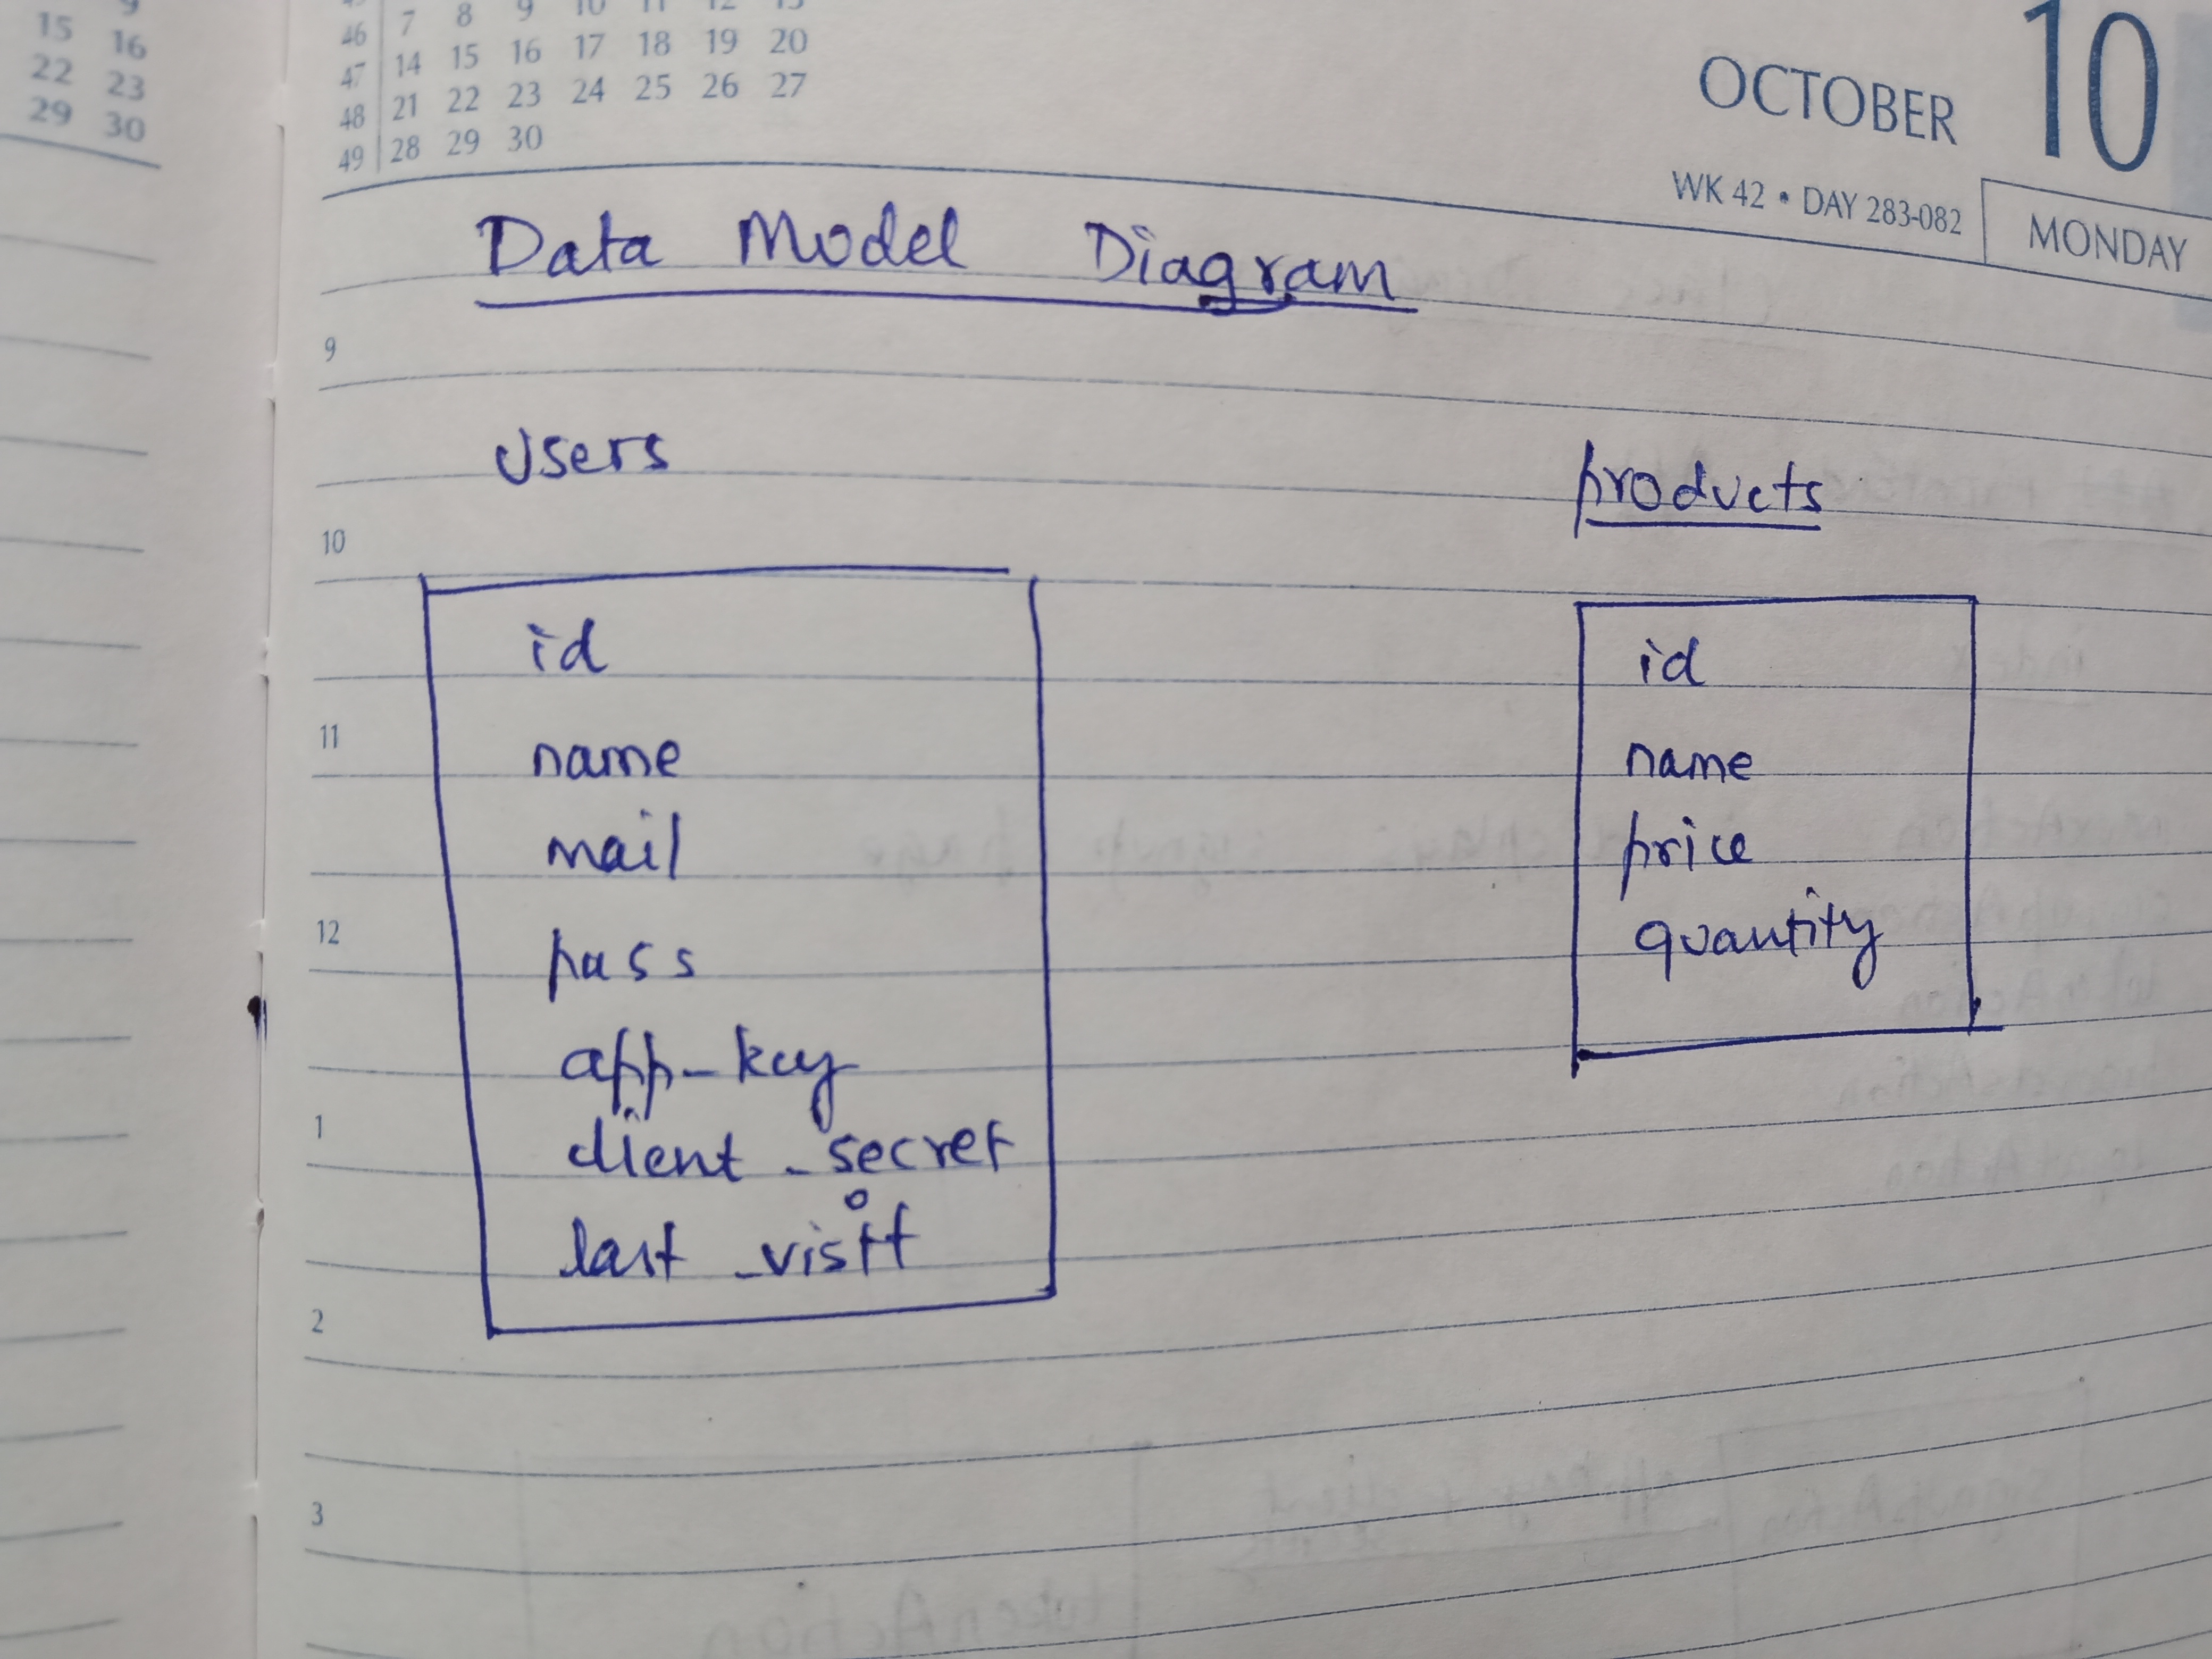 9
15 16
22 23
29 30
46 7 8 9 10 11 12 13
47 14 15 16 17 18 19 20
48 21 22 23 24 25 26 27
49 28 29 30
OCTOBER 10
WK 42 • DAY 283-082 MONDAY
Data Model Diagram
9
Users
products
10
id
name
mail
pass
app_key
client_secret
last_visit
id
name
price
quantity
11
12
1
2
3